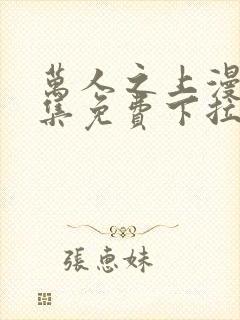 萬人之上漫
集免費下拉
張惠妹